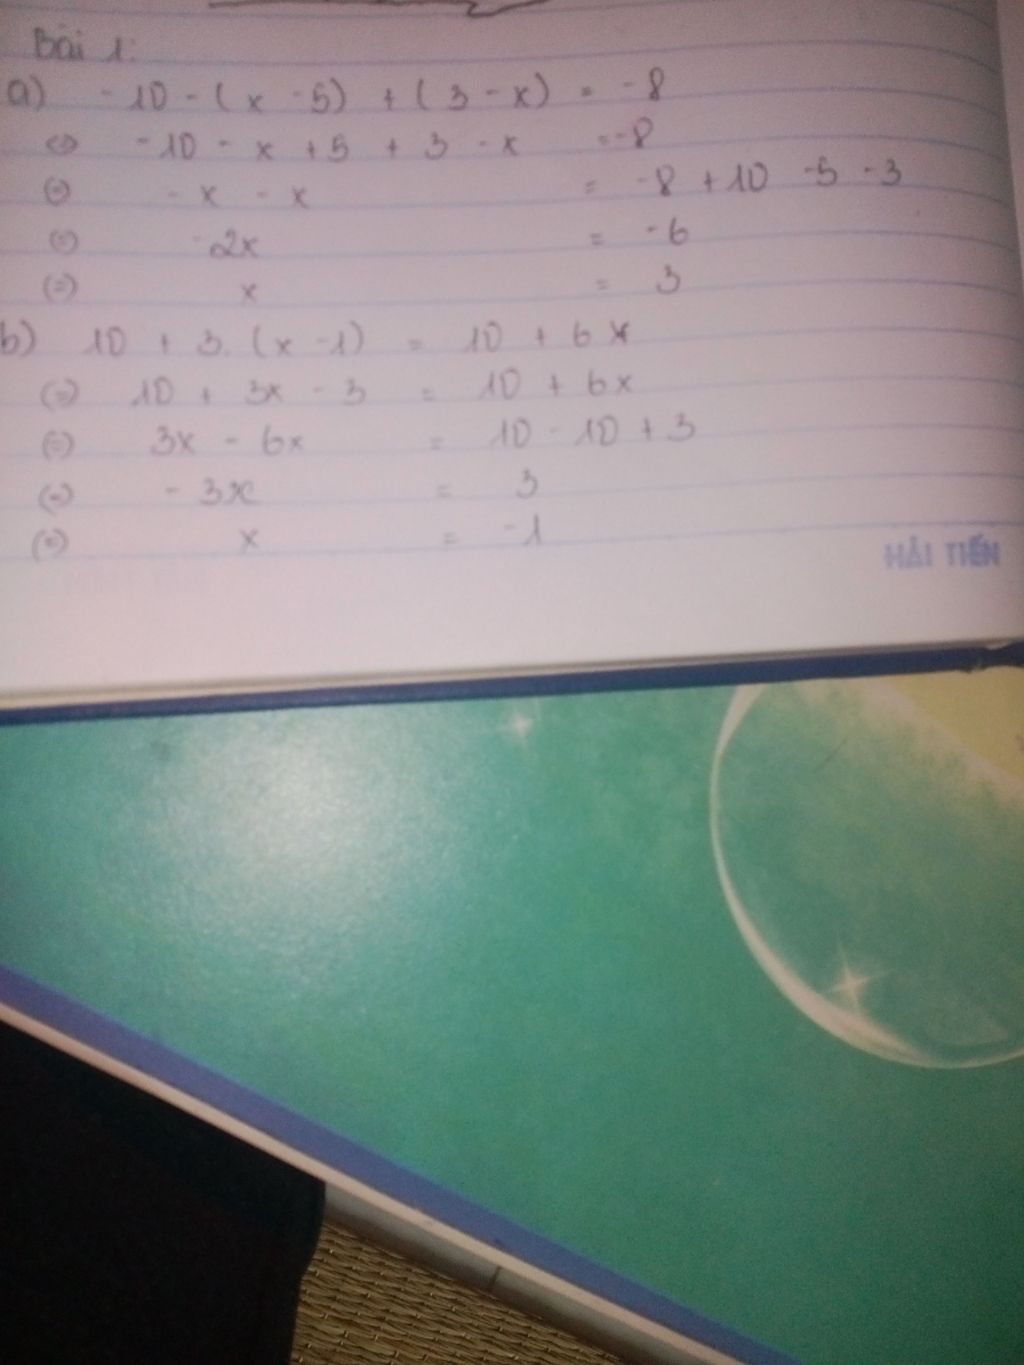 Bài 1:
a) -10 - (x - 5) + (3 - x) = -8
<=> -10 - x + 5 + 3 - x = -8
(=) - x - x = -8 + 10 - 5 - 3
(=) -2x = -6
(=) x = 3
b) 10 + 3. (x - 1) = 10 + 6x
(=) 10 + 3x - 3 = 10 + 6x
(=) 3x - 6x = 10 - 10 + 3
(=) - 3x = 3
(=) x = -1
HẢI TIẾN